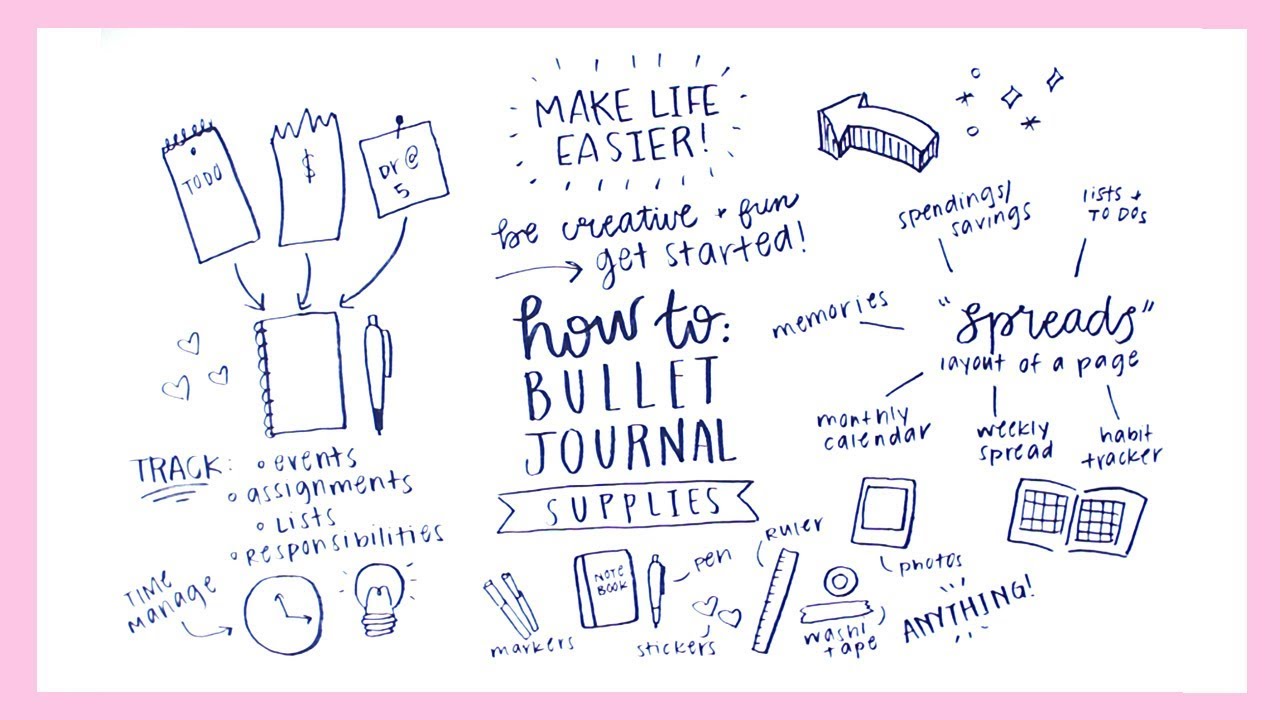 TODO
$
Dr @
5
TRACK:
• events
• assignments
• Lists
• Responsibilities
TIME
manage
MAKE LIFE
EASIER!
be creative + fun
get started!
how to:
BULLET
JOURNAL
SUPPLIES
markers
NOTE
BOOK
pen
stickers
RULER
washi
tape
photos
ANYTHING!
spendings/
savings
lists +
TO DOs
memories
"spreads"
layout of a page
monthly
calendar
weekly
spread
habit
tracker